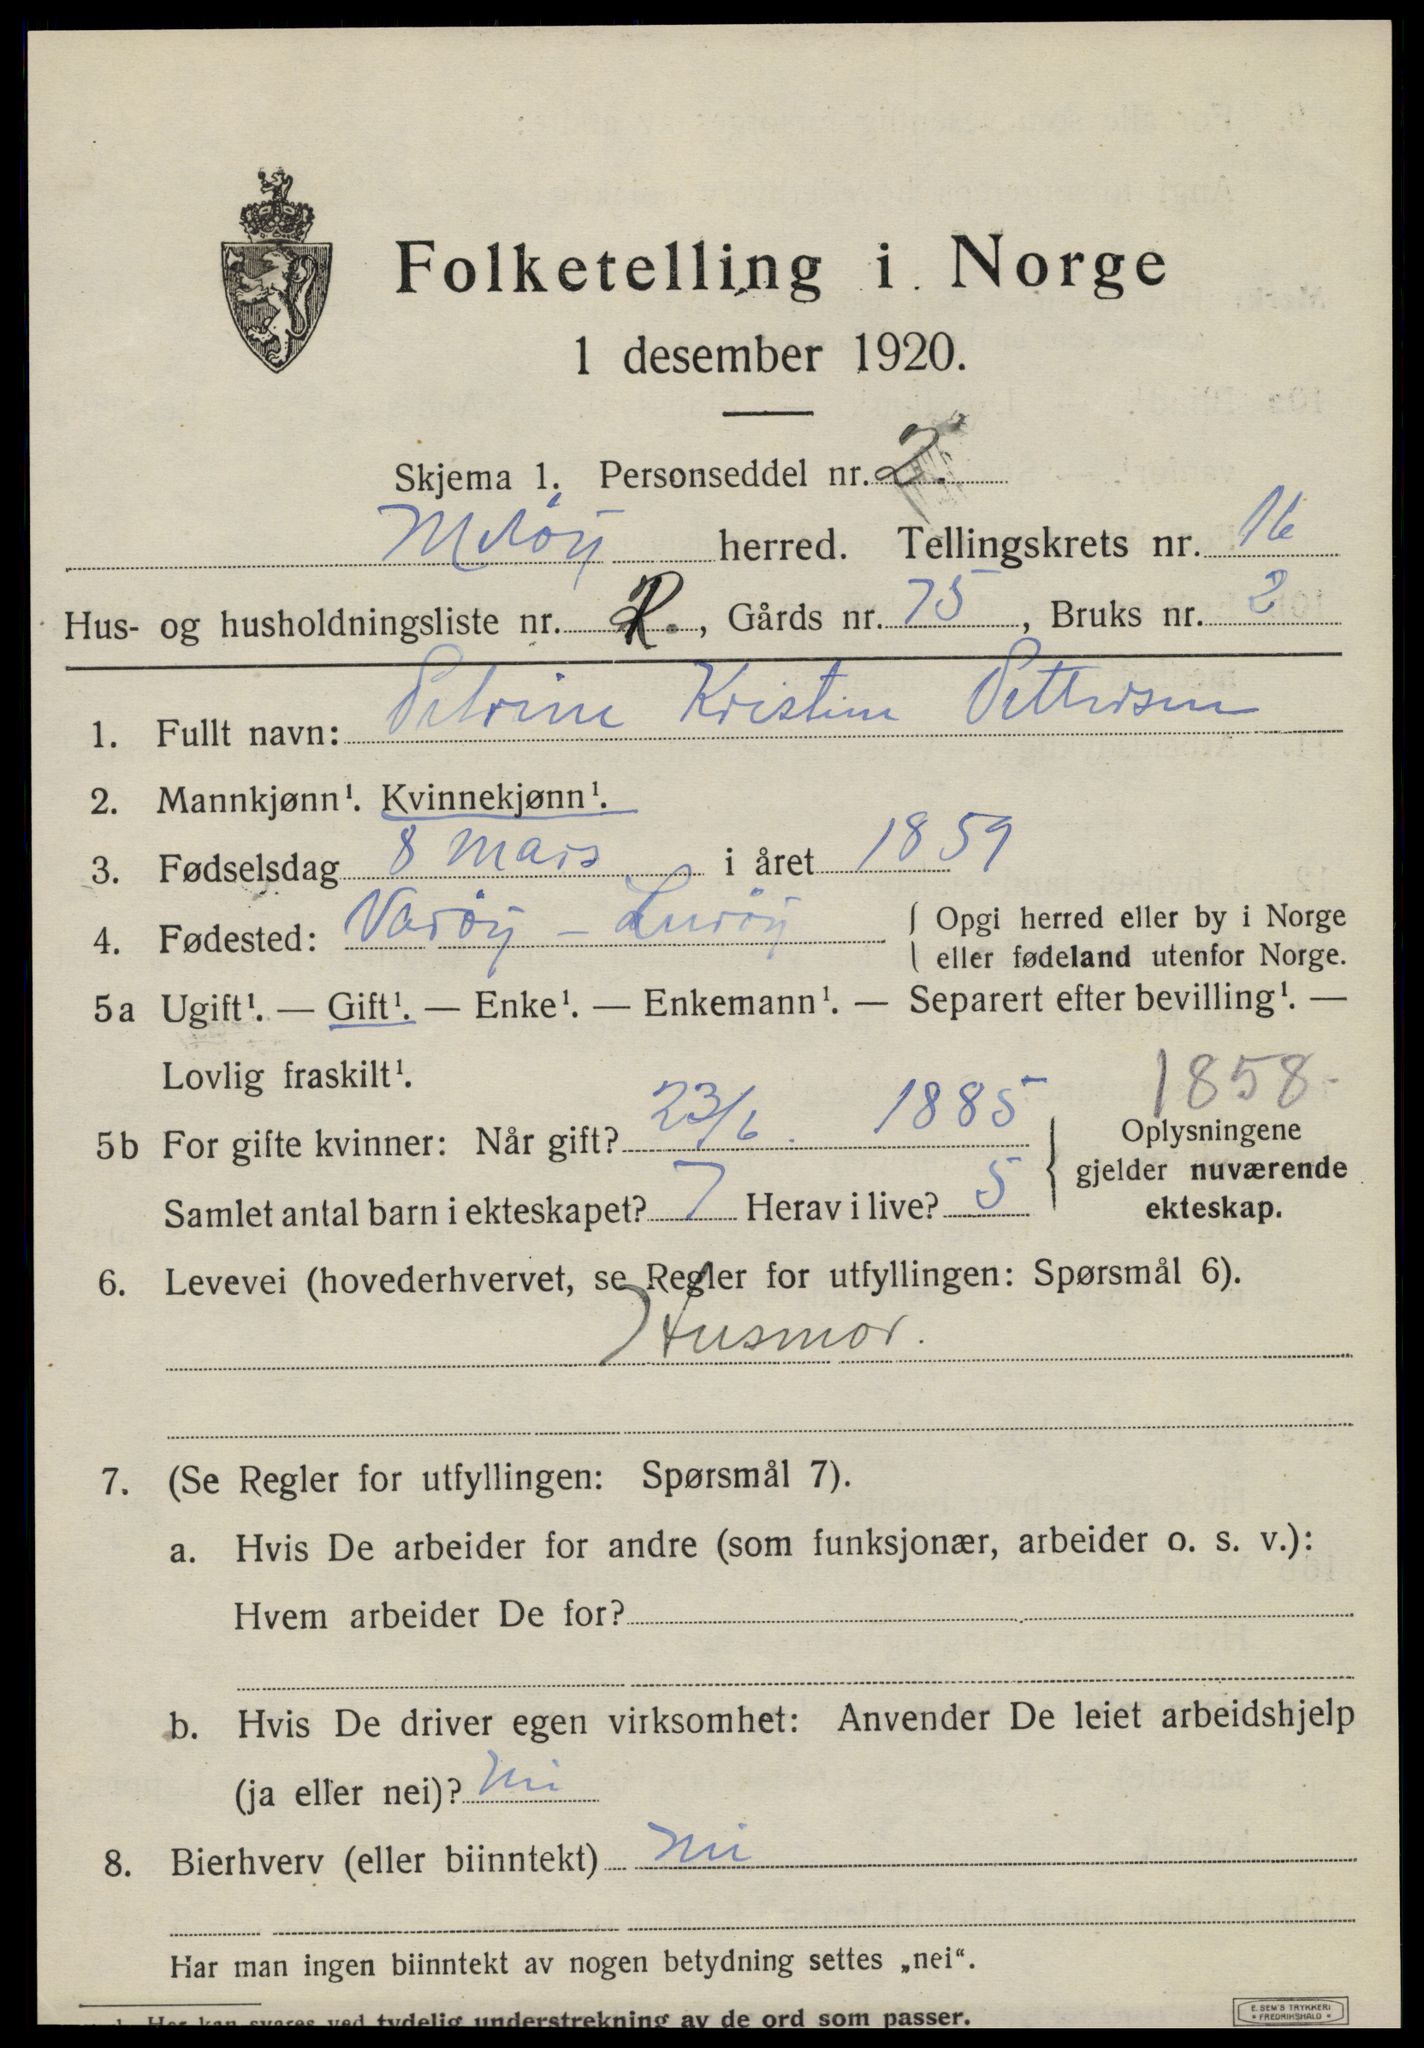 Folketelling i Norge
1 desember 1920.
Skjema 1. Personseddel nr. 2.
Meløy herred. Tellingskrets nr. 16
Hus- og husholdningsliste nr. , Gårds nr. 75, Bruks nr. 2
1. Fullt navn: Petrine Kristine Pettersen
2. Mannkjønn¹. Kvinnekjønn¹.
3. Fødselsdag 8 Mars i året 1859
4. Fødested: Varöy - Luröy { Opgi herred eller by i Norge
eller fødeland utenfor Norge.
5a Ugift¹. — Gift¹. — Enke¹. — Enkemann¹. — Separert efter bevilling¹. —
Lovlig fraskilt¹.
1858-
5b For gifte kvinner: Når gift? 23/6. 1885 } Oplysningene
gjelder nuværende
Samlet antal barn i ekteskapet? 7 Herav i live? 5
ekteskap.
6. Levevei (hovederhvervet, se Regler for utfyllingen: Spørsmål 6).
Husmor.
7. (Se Regler for utfyllingen: Spørsmål 7).
a. Hvis De arbeider for andre (som funksjonær, arbeider o. s. v.):
Hvem arbeider De for?
b. Hvis De driver egen virksomhet: Anvender De leiet arbeidshjelp
(ja eller nei)? nei
8. Bierhverv (eller biinntekt) nei
Har man ingen biinntekt av nogen betydning settes „nei“.
¹ Her kan svares ved tydelig understrekning av de ord som passer.
E. SEM'S TRYKKERI
* FREDRIKSHALD *